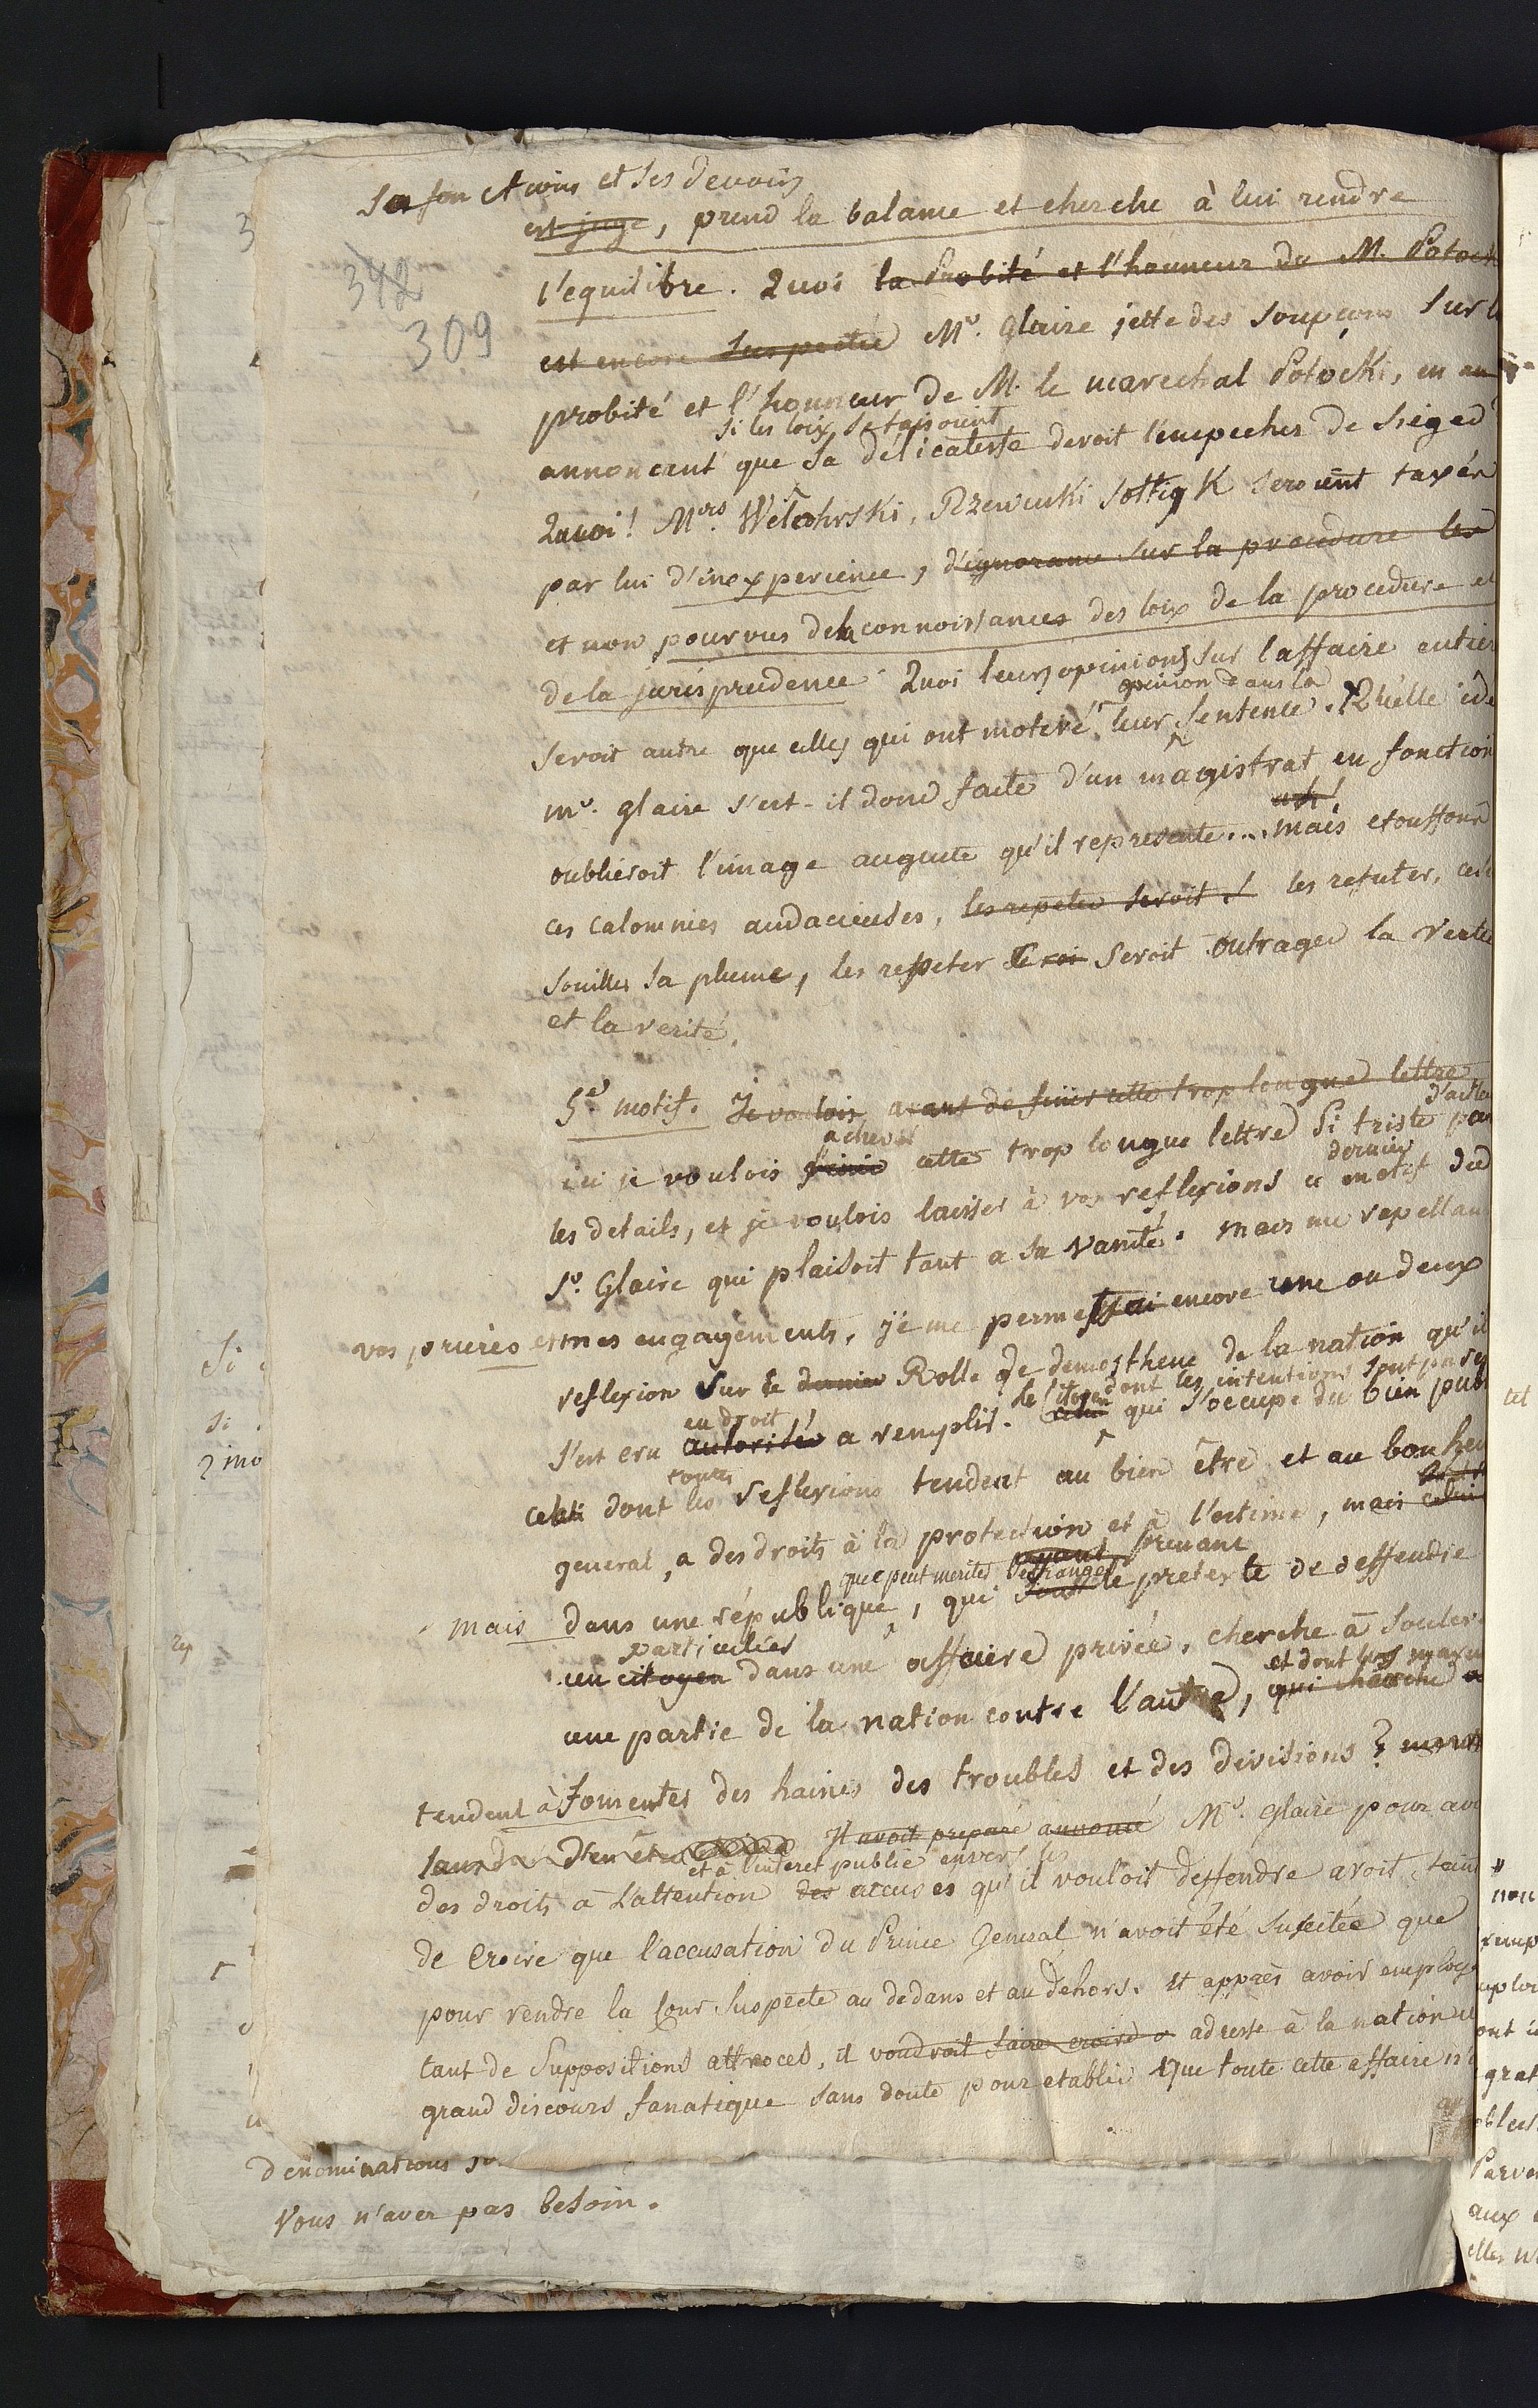 Sa fonctions et ses devoirs
est juge, prend la balance et cherche à lui rendre
342
309
l'equilibre. Quoi la probité et l'honneur du M. Potock
est encore suspectée Mr. Glaire jette des soupçons sur l
probité et l'honneur de M. le marechal Potocki, en an
si les loix se taisoient
annoncent que sa délicatesse devoit l'empecher de sieged
Quoi! Mrs. Wielohrski, Rzewuski Sottigk seroient taxés
par lui d'inexperience, d'ignorance sur la procedure les
et non pourvus de la connoissances des loix de la procedure et
de la jurisprudence. Quoi leurs opinions sur l'affaire entier
opinion dans la
seroit autre que celles qui ont motivé leur sentence. Quelle ide
mr. glaire s'est-il donc faite d'un magistrat en fonction
ah!
oublieroit l'image auguste qu'il represente... mais etouffons
ces calomnies audacieuses, les repeter seroit! les refuter, c'e
souiller sa plume, les repeter seroit outrager la vertu
et la verité.
5e. motif. Je voulois avant de finir cette trop longue lettre
achever
d'aille
ici je voulois finir cette trop longue lettre si triste par
dernier
les details, et je voulois laisser à vos reflexions ce motif du
Sr. Glaire qui plaisoit tant a sa vanité. mais me rapellan
vos prieres et mes engagements, je me permettrai encore une ou deux
reflexion sur le dernier Rolle de demosthene de la nation qu'il
en droit
le citoyen dont les intentions sont pures
s'est cru autorisé a remplir. celui qui s'occupe du bien publ
toutes
celui dont les reflexions tendent au bien être et au bonheu
general, a des droits à la protection et à l'estime, mais celui
que peut meriter l'etranger
ayant prenant
mais dans une république, qui sous le pretexte de deffendre
particulier
un citoyen dans une affaire privée, cherche à soulev
et dont les maxim
une partie de la nation contre l'autre, qui cherche a
tendent à fomenter des haines des troubles et des divisions?
sans d'en être Il avoit preparé annoncé Mr. glaire pour av
et à l'interet public envers les
des droits à L'attention des accusés qu'il vouloit deffendre avoit, fein
de croire que l'accusation du Prince General n'avoit été suscitée que
pour rendre la Cour suspecte au dedans et au dehors. et apprès avoir employ
tant de suppositions attroces, il voudroit faire croire a adresse à la nation u
grand discours fanatique sans doute pour etablir que toute cette affaire n'
denominations
Vous n'avez pas besoin.